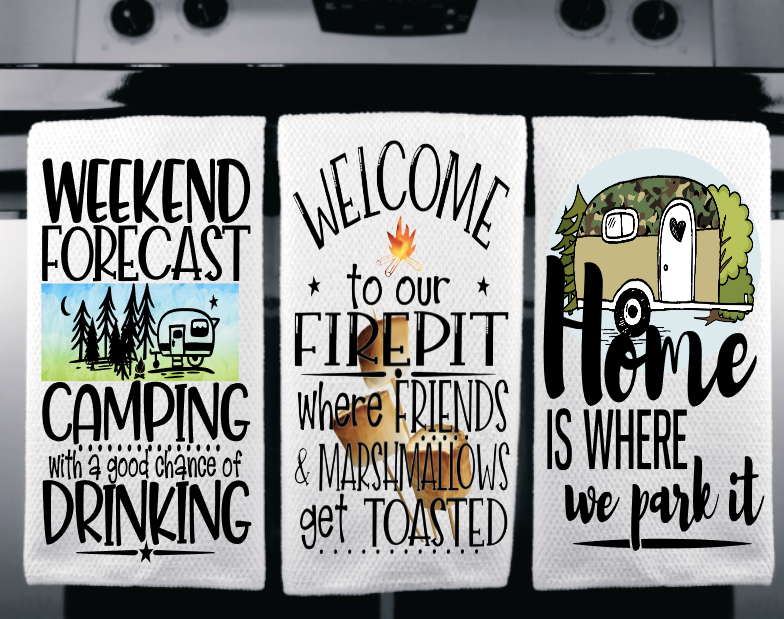 WEEKEND
FORECAST
CAMPING
with a good chance of
DRINKING
WELCOME
to our
FIREPIT
where FRIENDS
& MARSHMALLOWS
get TOASTED
Home
IS WHERE
we park it